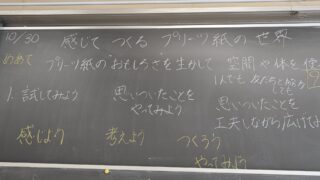 10/30 感じて つくる プリーツ紙の世界
めあて プリーツ紙の"おもしろさを生かして 空間や体を使
1人でも 友だちと
しても
1. 試してみよう 思いついたことを 思いついたことを
やってみよう 工夫しながら広げてみ
感じよう 考えよう つくろう
やってみよう